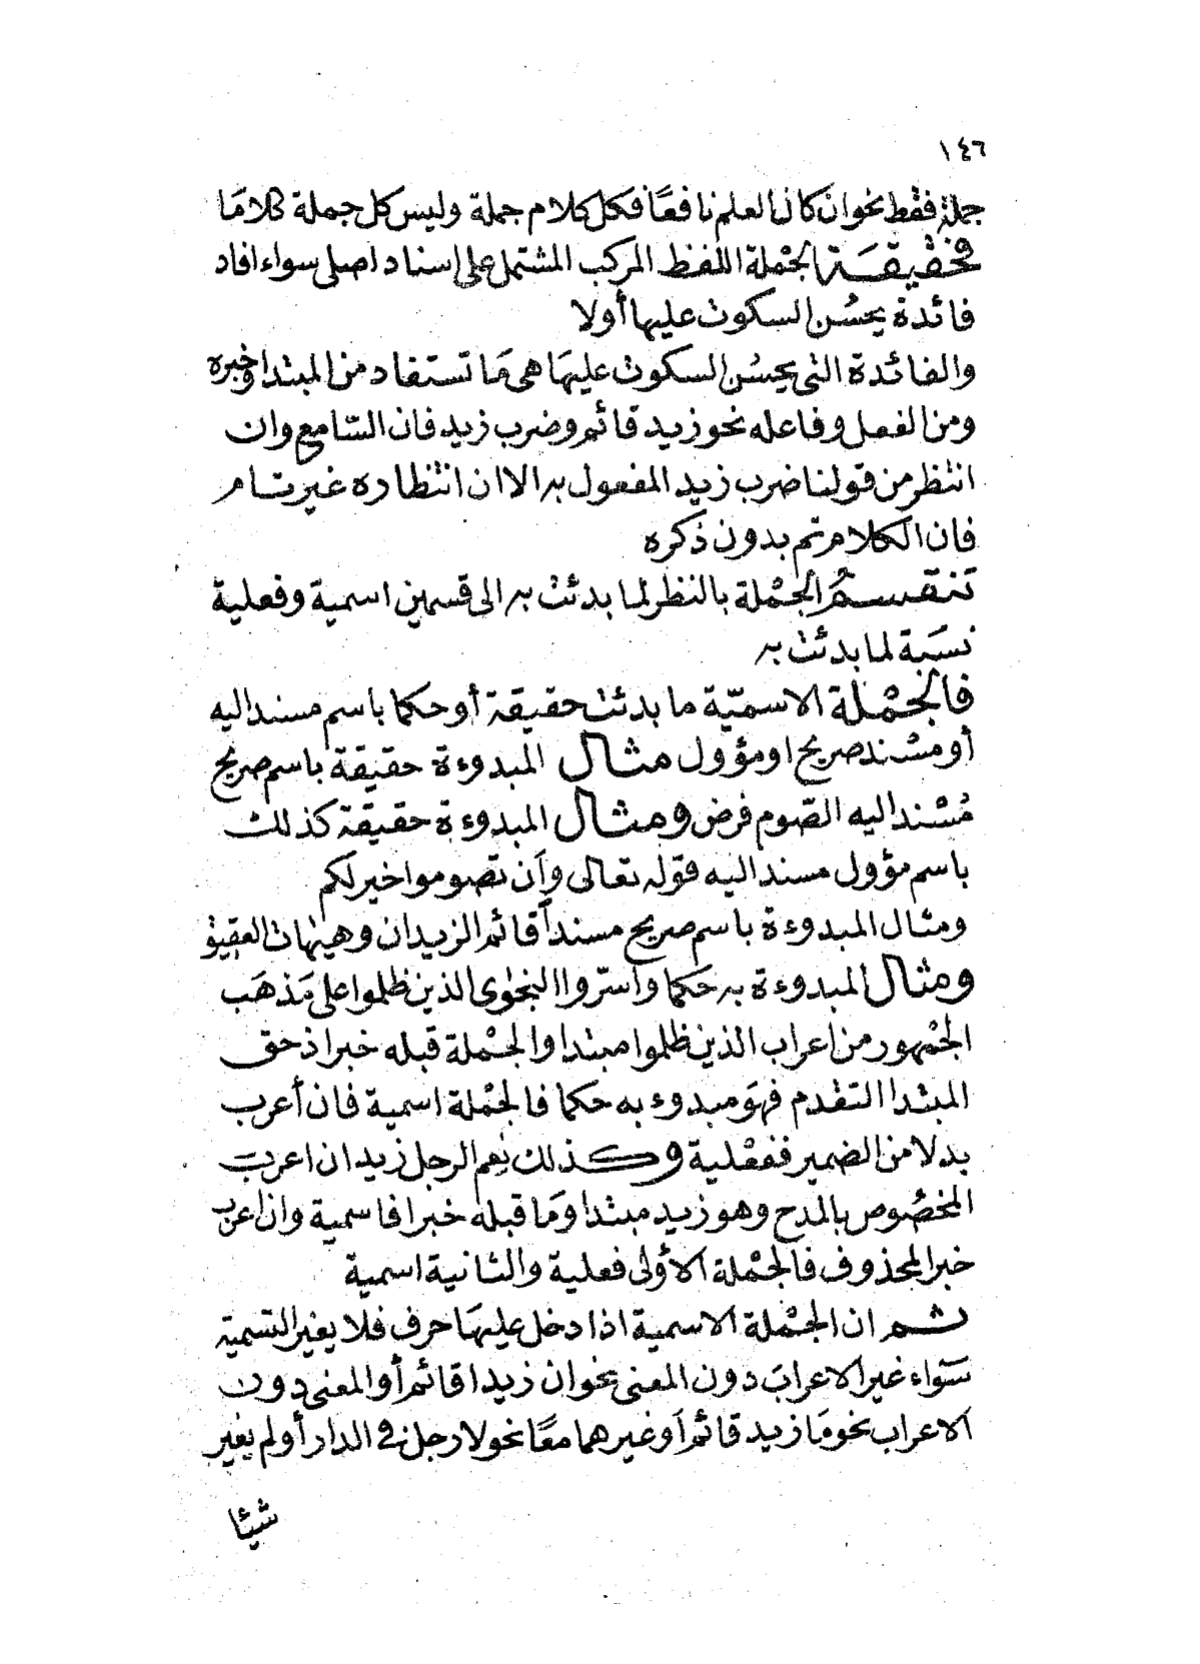 ١٤٦
جملة فقط نحو ان كان العلم نافعًا فكل كلام جملة وليس كل جملة كلامًا
فحقيقة الجمْلة اللفظ المركب المشتمل على اسناد اصلى سواء افاد
فائدة يحسُن السكوت عليها أولا
والفائدة التى يحسُن السكوت عليهَا هى مَا تستفاد من المبتدا وخبره
ومن الفعل وفاعله نحو زيد قائم وضرب زيد فان السّامع وان
انتظر من قولنا ضرب زيد المفعول به الا ان انتظاره غير تام
فان الكلام تم بدون ذكره
تنقسمُ الجمْلة بالنظر لما بدئت به الى قسمين اسمية وفعلية
نسَبة لما بدئت به
فالجمْلة الاسميّة ما بدئت حقيقة أو حكما باسم مسند اليه
أو مسْند صريح او مؤول مثال المبدوءة حقيقة باسم صريح
مُسْند اليه الصّوم فرض ومثال المبدوءة حقيقة كذلك
باسم مؤول مسند اليه قوله تعالى وَأن تصوموا خير لكم
ومثال المبدوءة باسم صريح مسنداً قائم الزيدان وهيهات العقيق
ومثال المبدوءة به حَكما وأسرّوا النجوى الذين ظلموا على مَذهَب
الجمْهور من اعراب الذين ظلموا مبتدا والجمْلة قبله خبرا ذ حق
المبتدا التقدم فهَو مبدوء به حكما فالجمْلة اسمية فان أعرب
بدلا من الضمير ففعْلية وكذلك نِعم الرجل زيد ان اعرب
المخصُوص بالمدح وهو زيد مبتدا ومَا قبله خبرا فاسمية وان اعرب
خبر المحذوف فالجمْلة الأولى فعلية والثانية اسمية
ثم ان الجمْلة الاسمية اذا دخل عليهَا حرف فلا يغير التسمية
سَواء غير الاعراب دون المعنى نحو ان زيدا قائم أو المعنى دون
الاعراب نحو مَا زيد قائم أو غيرهما معًا نحو لا رجل في الدار أو لم يغير
شيئا